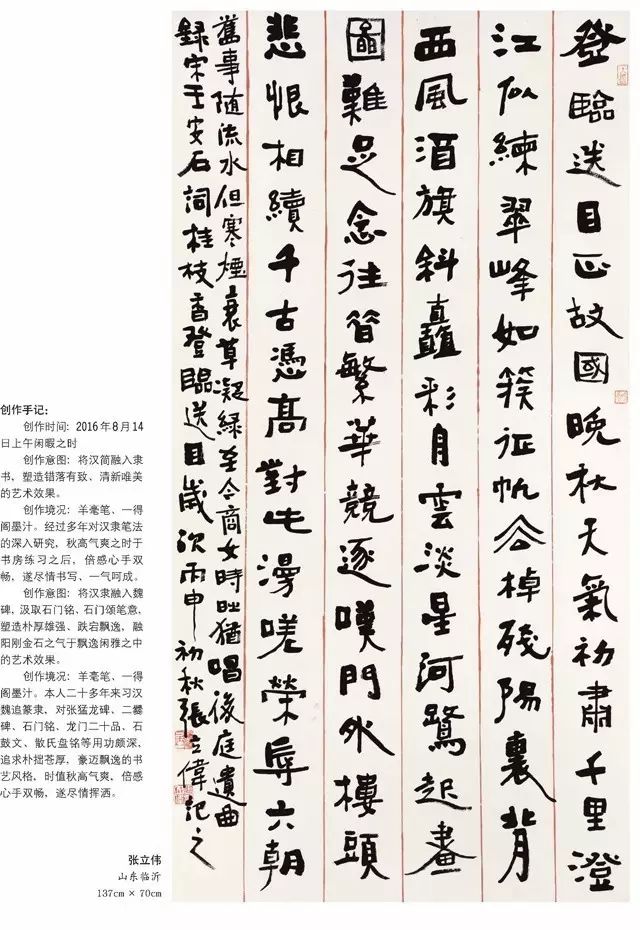 登臨送目正故國晚秋天氣初肅千里澄
江似練翠峰如簇征帆去棹殘陽裏背
西風酒旗斜矗彩舟雲淡星河鷺起畫
圖難足念往昔繁華競逐嘆門外樓頭
悲恨相續千古憑高對此漫嗟榮辱六朝
舊事隨流水但寒煙衰草凝綠至今商女時時猶唱後庭遺曲
録宋王安石詞桂枝香登臨送目歲次丙申初秋張立偉記之
创作手记：
创作时间：2016年8月14
日上午闲暇之时
创作意图：将汉简融入隶
书，塑造错落有致、清新唯美
的艺术效果。
创作境况：羊毫笔、一得
阁墨汁。经过多年对汉隶笔法
的深入研究，秋高气爽之时于
书房练习之后，倍感心手双
畅，遂尽情书写、一气呵成。
创作意图：将汉隶融入魏
碑，汲取石门铭、石门颂笔意，
塑造朴厚雄强、跌宕飘逸，融
阳刚金石之气于飘逸闲雅之中
的艺术效果。
创作境况：羊毫笔、一得
阁墨汁。本人二十多年来习汉
魏追篆隶，对张猛龙碑、二爨
碑、石门铭、龙门二十品、石
鼓文、散氏盘铭等用功颇深，
追求朴拙苍厚，豪迈飘逸的书
艺风格，时值秋高气爽，倍感
心手双畅，遂尽情挥洒。
张立伟
山东临沂
137cm × 70cm